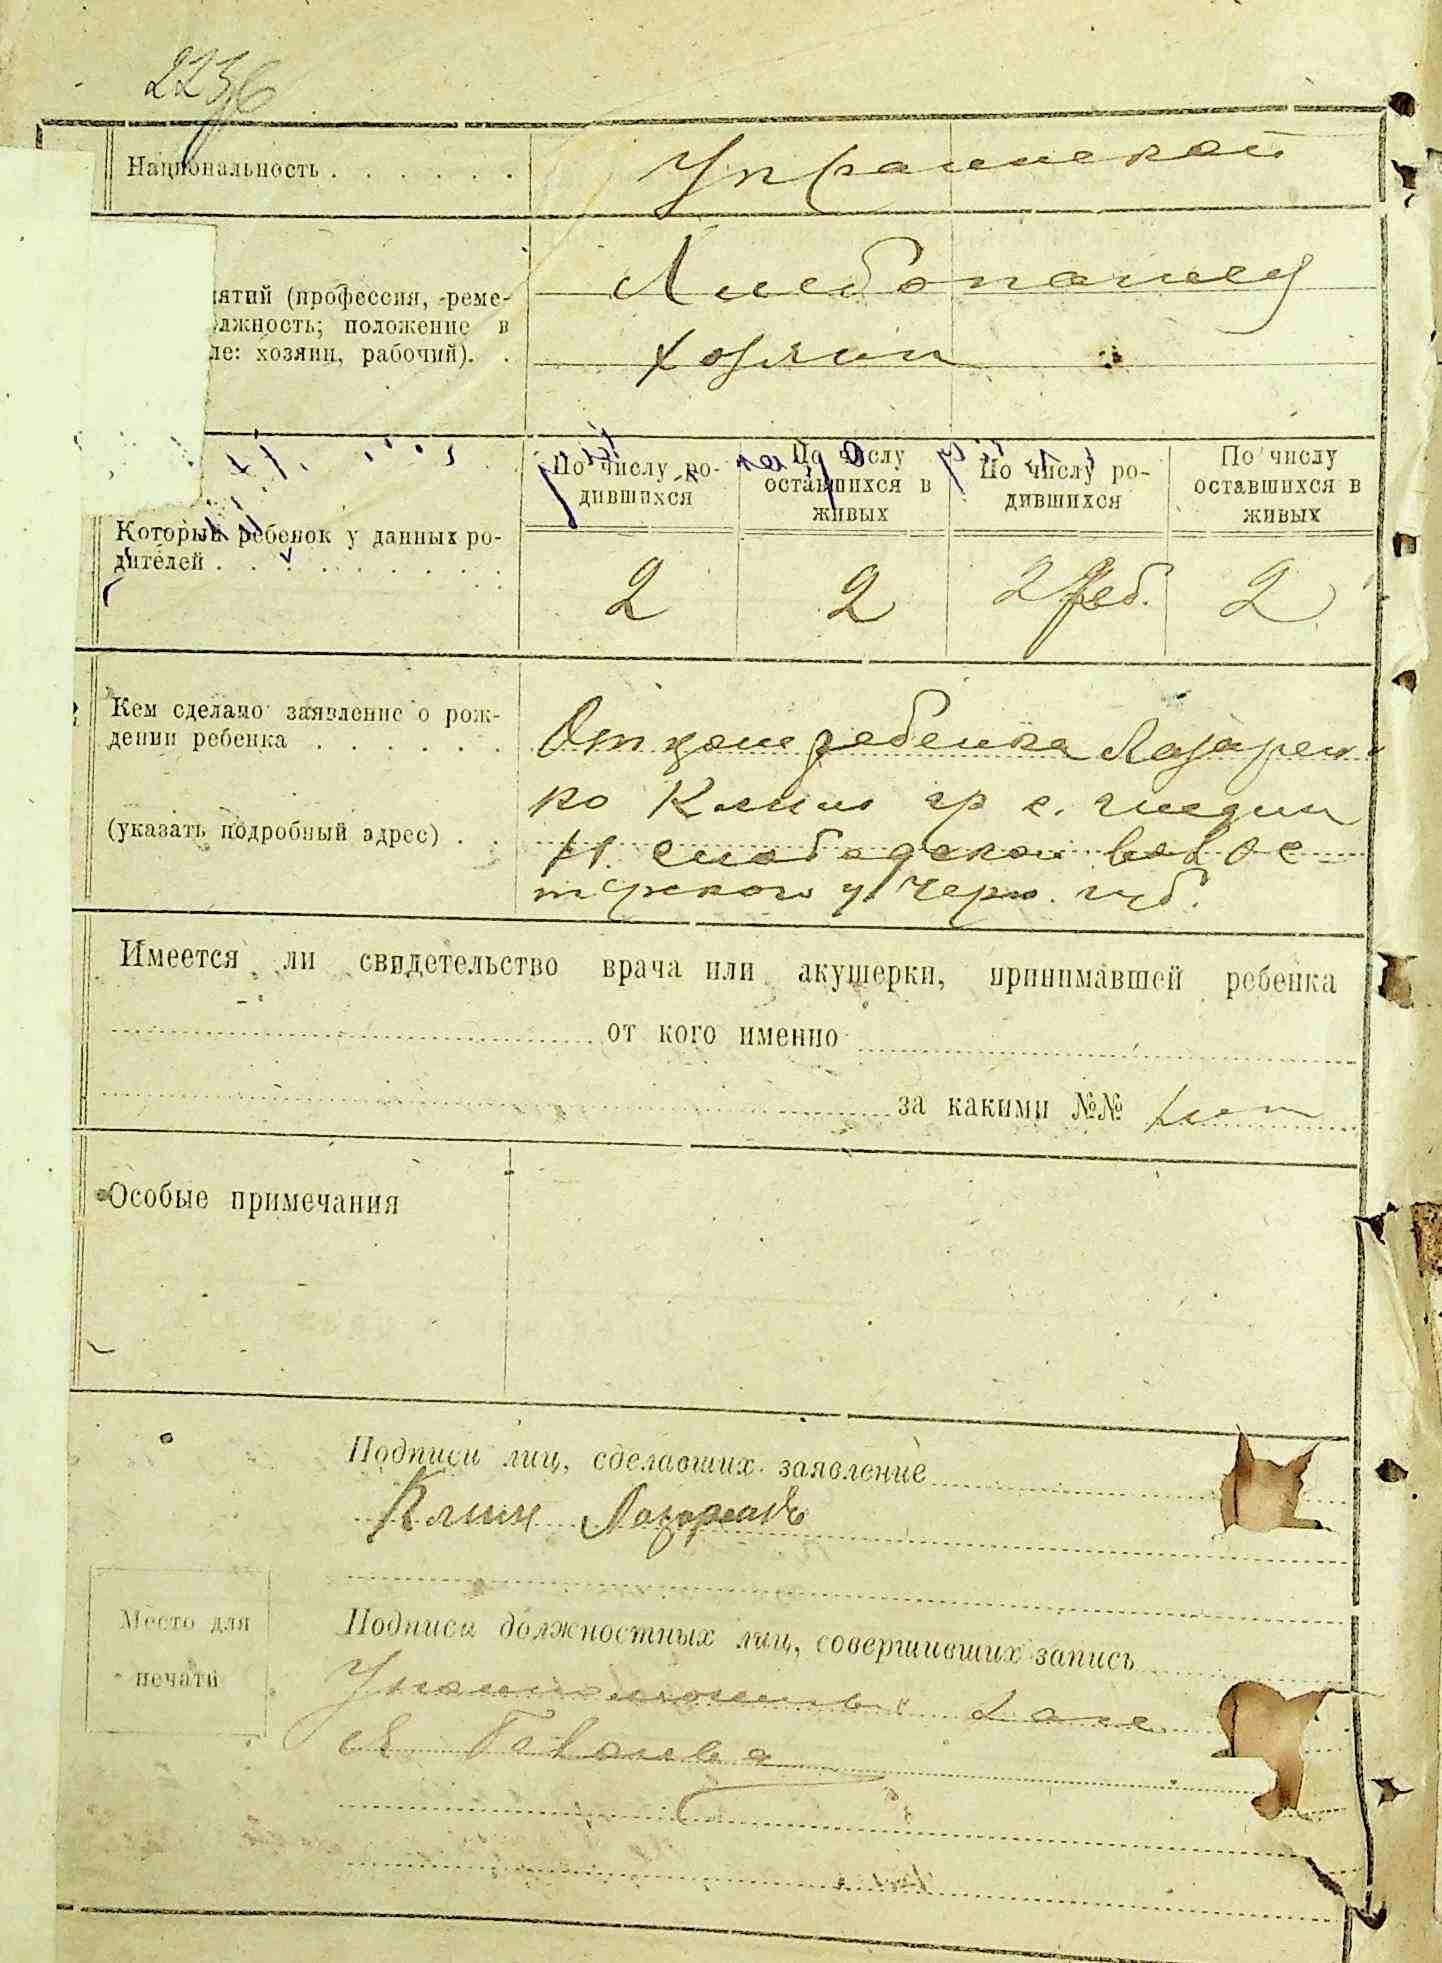 Национальность . . . . . .
Украинской
ятий (профессия, реме-
лжность; положение в
ле: хозяин, рабочий). .
Хлебопашец
хозяин
По числу ро-
дившихся
По числу
оставшихся в
живых
По числу ро-
дившихся
По числу
оставшихся в
живых
Который ребенок у данных ро-
дителей . . . . . . . . .
2
2
2 реб.
2
Кем сделано заявление о рож-
дении ребенка . . . . . .
(указать подробный адрес) . .
Отцом ребенка Лазарен
ко Клим гр с.
Н. слободской вол Ос
терского у Черн. губ.
Имеется ли свидетельство врача или акушерки, принимавшей ребенка
от кого именно
за какими №№ нет
Особые примечания
Подписи лиц, сделавших заявление
Клим Лазаренко
Место для
печати
Подписи должностных лиц, совершивших запись